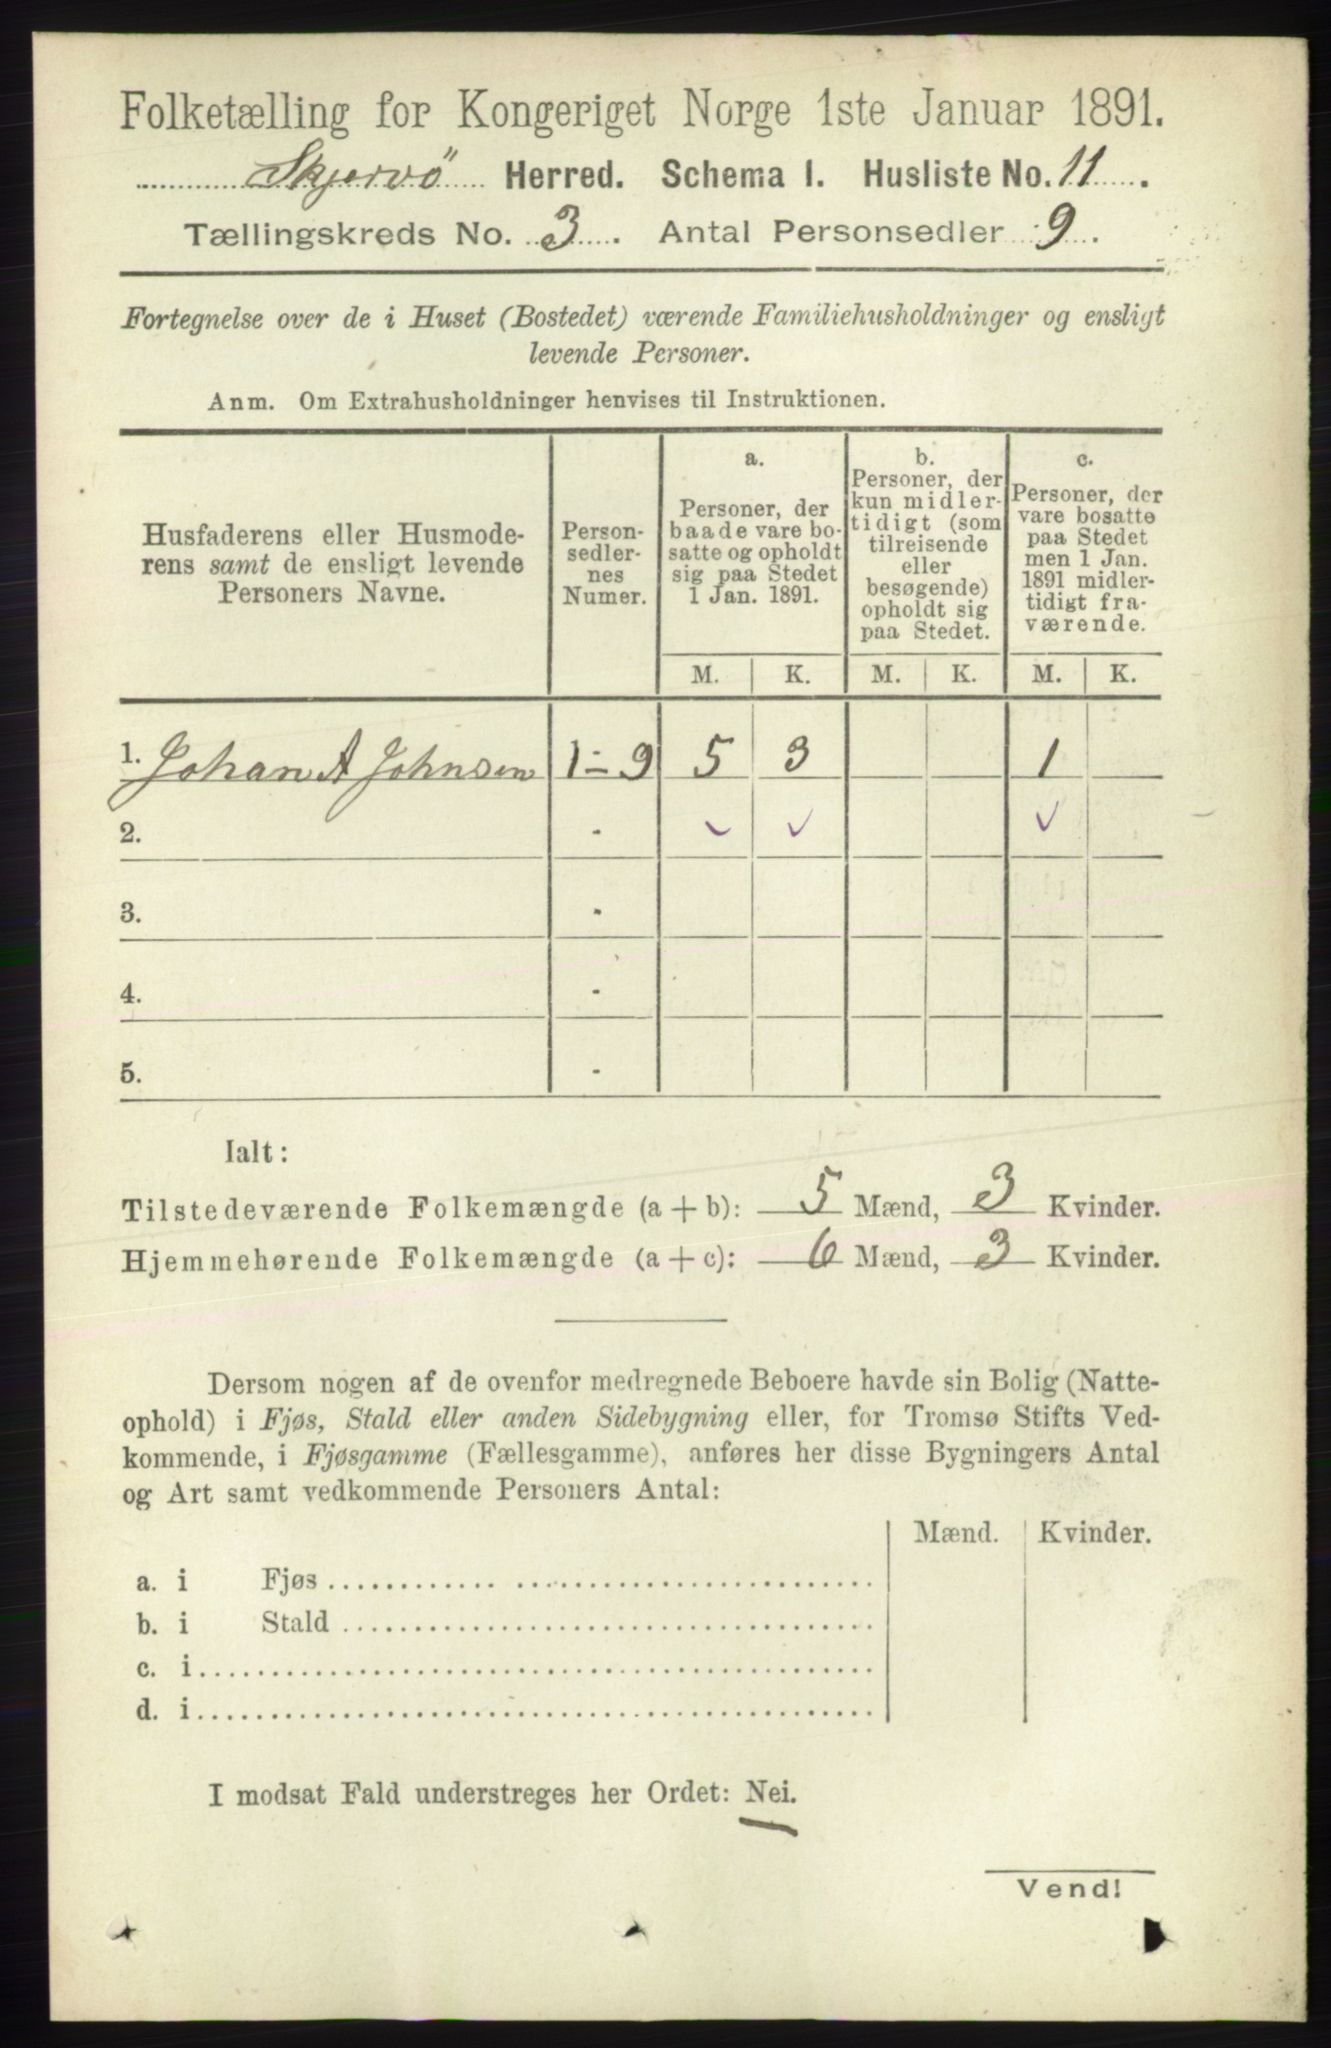 Folketælling for Kongeriget Norge 1ste Januar 1891.
Skjervö Herred. Schema I. Husliste No. 11.
Tællingskreds No. 3. Antal Personsedler 9.
Fortegnelse over de i Huset (Bostedet) værende Familiehusholdninger og ensligt
levende Personer.
Anm. Om Extrahusholdninger henvises til Instruktionen.
Husfaderens eller Husmode-
rens samt de ensligt levende
Personers Navne.
Person-
sedler-
nes
Numer.
a.
Personer, der
baade vare bo-
satte og opholdt
sig paa Stedet
1 Jan. 1891.
b.
Personer, der
kun midler-
tidigt (som
tilreisende
eller
besøgende)
opholdt sig
paa Stedet.
c.
Personer, der
vare bosatte
paa Stedet
men 1 Jan.
1891 midler-
tidigt fra-
værende.
M. K. M. K. M. K.
1. Johan A Johnsen 1-9 5 3 1
2. - ✓ ✓ ✓
3. -
4. -
5. -
Ialt:
Tilstedeværende Folkemængde (a + b): 5 Mænd, 3 Kvinder.
Hjemmehørende Folkemængde (a + c): 6 Mænd, 3 Kvinder.
Dersom nogen af de ovenfor medregnede Beboere havde sin Bolig (Natte-
ophold) i Fjøs, Stald eller anden Sidebygning eller, for Tromsø Stifts Ved-
kommende, i Fjøsgamme (Fællesgamme), anføres her disse Bygningers Antal
og Art samt vedkommende Personers Antal:
Mænd. Kvinder.
a. i Fjøs
b. i Stald
c. i
d. i
I modsat Fald understreges her Ordet: Nei.
Vend!